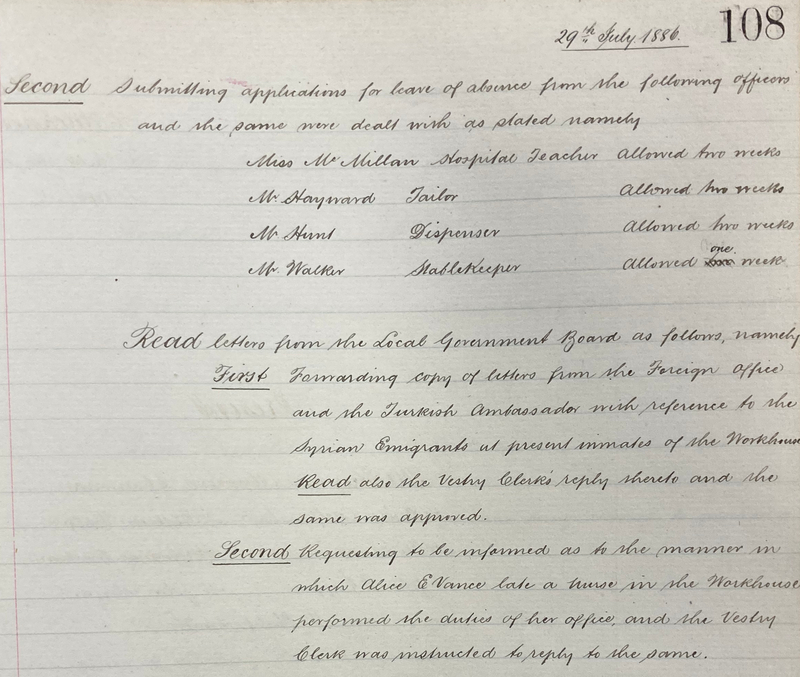 29th July 1886. 108
Second Submitting applications for leave of absence from the following officers
and the same were dealt with as stated namely
Miss McMillan Hospital Teacher Allowed two weeks
Mr Hayward Tailor Allowed two weeks
Mr Hunt Dispenser Allowed two weeks
Mr Walker Stablekeeper Allowed one week
Read letters from the Local Government Board as follows, namely
First Forwarding copy of letters from the Foreign Office
and the Turkish Ambassador with reference to the
Syrian Emigrants at present inmates of the Workhouse
Read also the Vestry Clerk's reply thereto and the
same was approved.
Second Requesting to be informed as to the manner in
which Alice E Vance late a nurse in the Workhouse
performed the duties of her office, and the Vestry
Clerk was instructed to reply to the same.